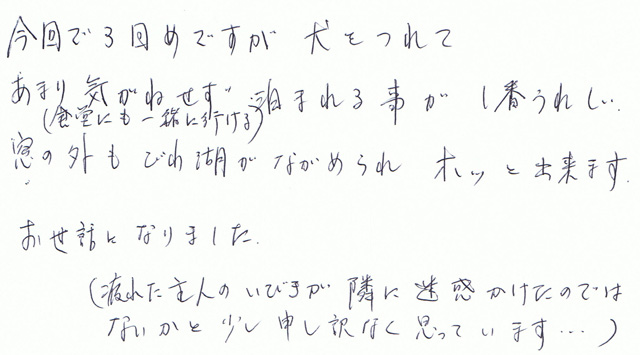 今回で3回めですが 犬をつれて
あまり気がねせず 泊まれる事が 1番うれしい.
(食堂にも一緒に行ける)
窓の外も びわ湖が ながめられ ホッと出来ます.
お世話になりました.
(疲れた主人のいびきが 隣に迷惑かけたのでは
ないかと少し申し訳なく思っています…)